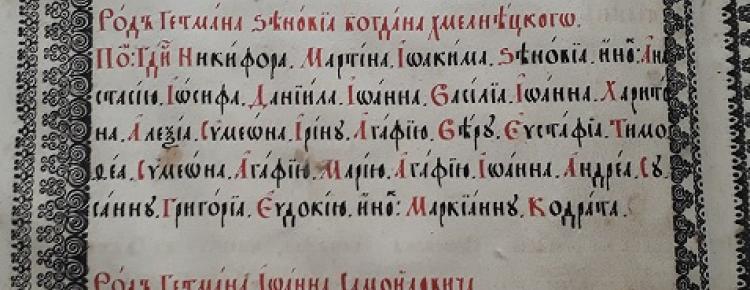 Рѡдъ Гетма́на Ѕѣно́вїа Богда́на Хмелнѣ́цкогѡ.
По҃: Гдⷭ҇и Ники́фора. Марті́на. Іѡаки́ма. Ѕѣно́вїа. и҆но҃: Ана
стасі́ю. Іѡ́сифа. Данїи́ла. Іѡа́нна. Васі́лїа. Іѡа́нна. Харитѡ
на. Алеѯі́а. Сѵмеѡ́на. Ірі́нꙋ. Ага́фїю. Вѣ́рꙋ. Єѵста́фїа. Тимо
ѳе́а. Сѵмеѡ́на. Ага́фїю. Марі́ю. Ага́фїю. Іѡа́нна. Андре́а. Сꙋ
са́ннꙋ. Григо́рїа. Єѵдокі́ю. и҆но҃: Маркїа́ннꙋ. Кодра́та.
Рѡдъ Гетма́на Іѡа́нна Самойло́вича.